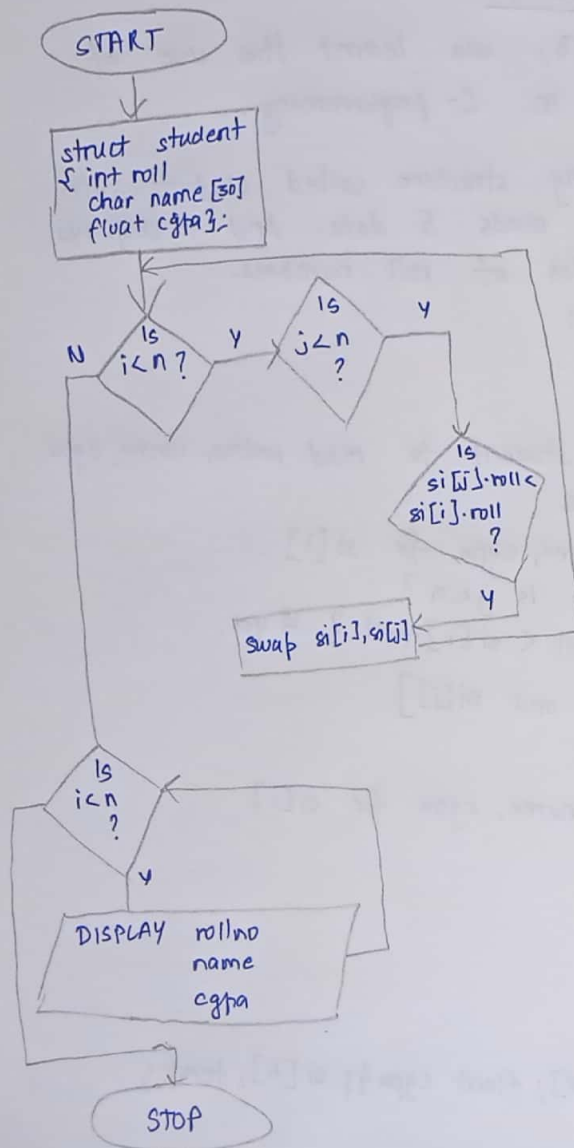 START
struct student
{ int roll
char name [30]
float cgpa};
Is
i<n ?
N
Y
Is
j<n
?
Y
Is
si[j].roll<
si[i].roll
?
Y
swap si[i], si[j]
Is
i<n
?
Y
DISPLAY rollno
name
cgpa
STOP